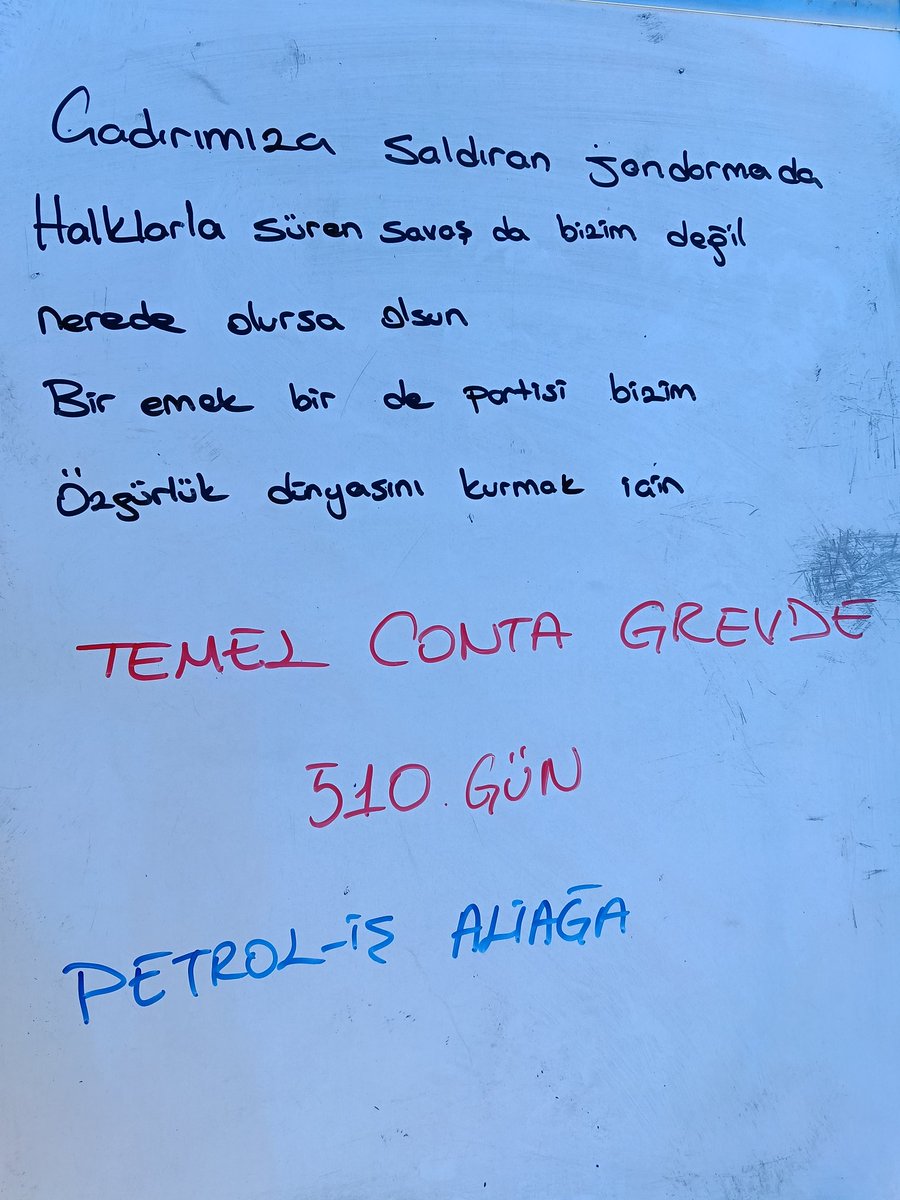 Çadırımıza saldıran jandarmada
Halklarla süren savaş da bizim değil
nerede olursa olsun
Bir emek bir de partisi bizim
Özgürlük dünyasını kurmak için
TEMEL CONTA GREVDE
510. GÜN
PETROL-İŞ ALİAĞA